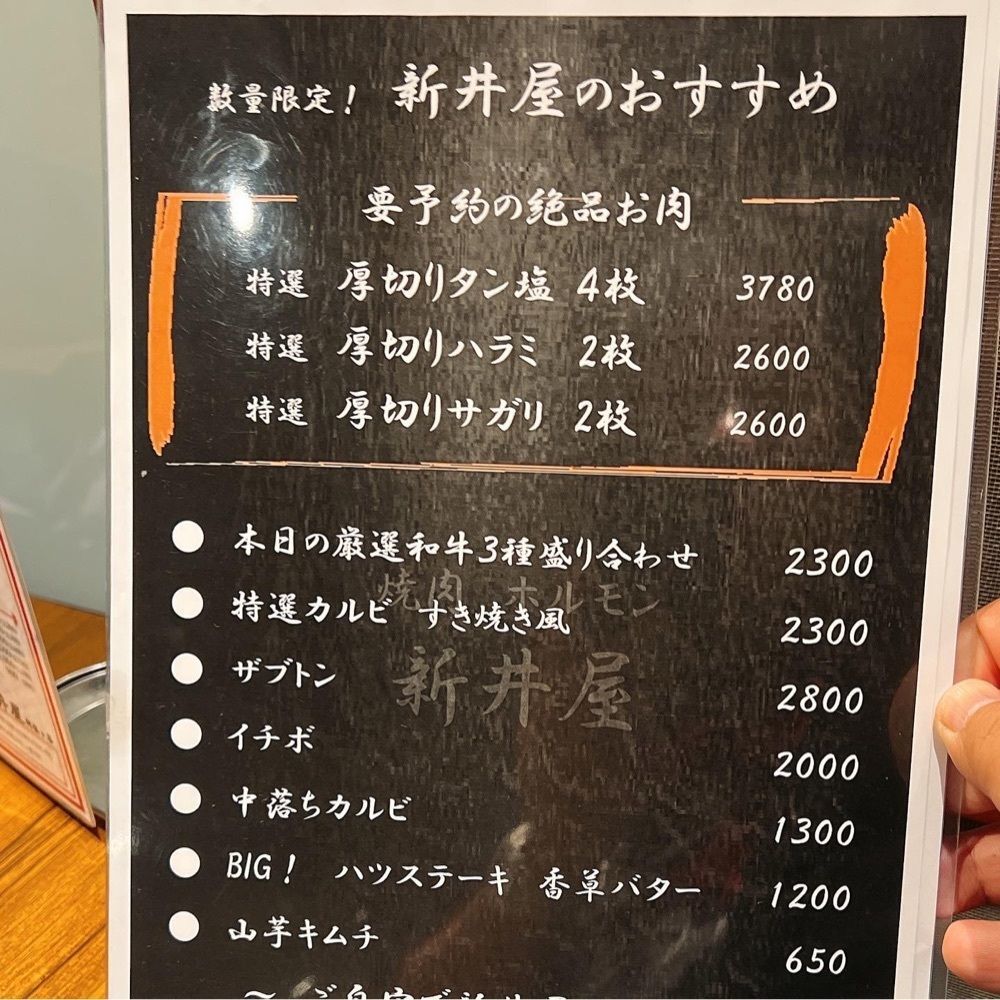 数量限定! 新井屋のおすすめ
要予約の絶品お肉
特選 厚切りタン塩 4枚 3780
特選 厚切りハラミ 2枚 2600
特選 厚切りサガリ 2枚 2600
本日の厳選和牛3種盛り合わせ 2300
焼肉 ホルモン
特選カルビ すき焼き風 2300
新井屋
ザブトン 2800
イチボ 2000
中落ちカルビ 1300
BIG! ハツステーキ 香草バター 1200
山芋キムチ 650